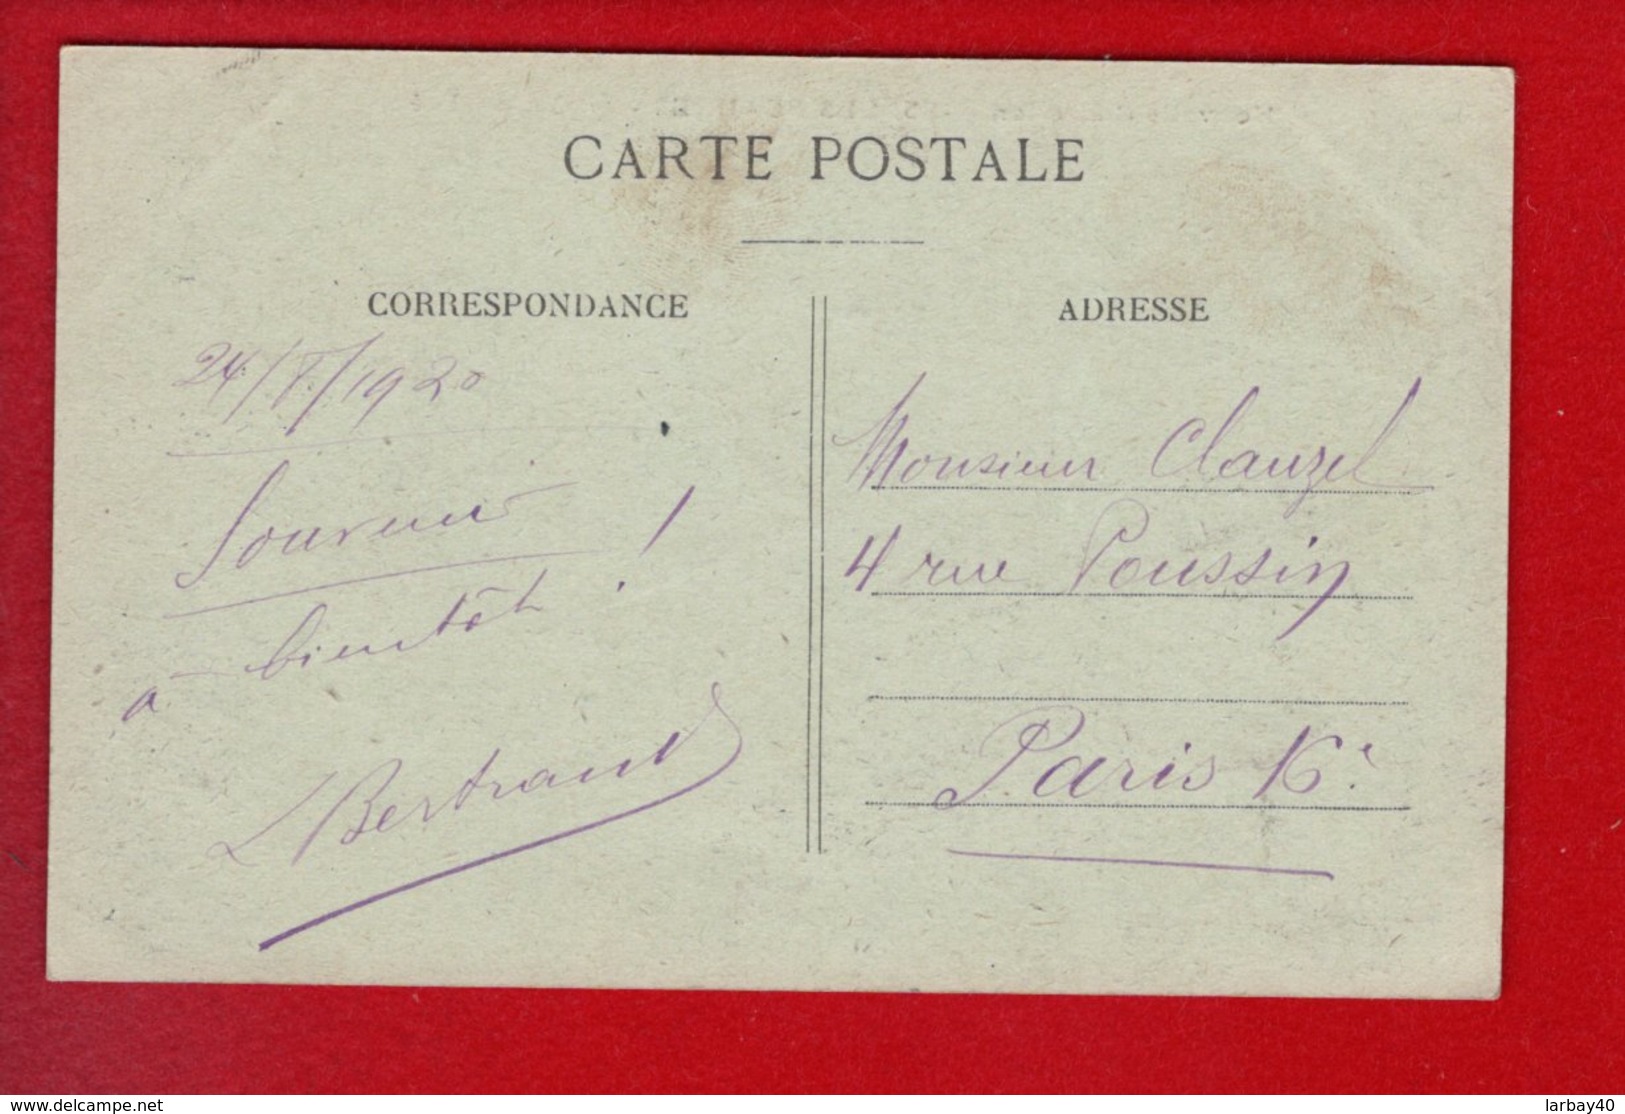 CARTE POSTALE
CORRESPONDANCE
24/8/1920
Souvenir
à bientôt !
L Bertrand
ADRESSE
Monsieur Clauzel
4 rue Poussin
Paris 16e
www.delcampe.net
larbay40